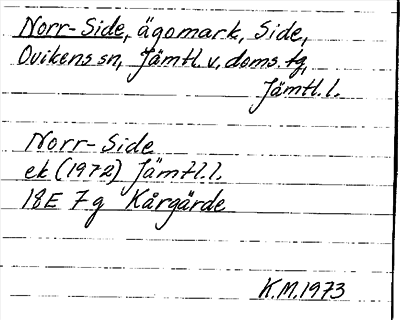 Norr-Side, ägomark, Side,
Ovikens sn, Jämtl. v. doms. tg,
Jämtl. l.
Norr-Side
ek (1972) Jämtl. l.
18E 7g Kårgärde
K.M. 1973